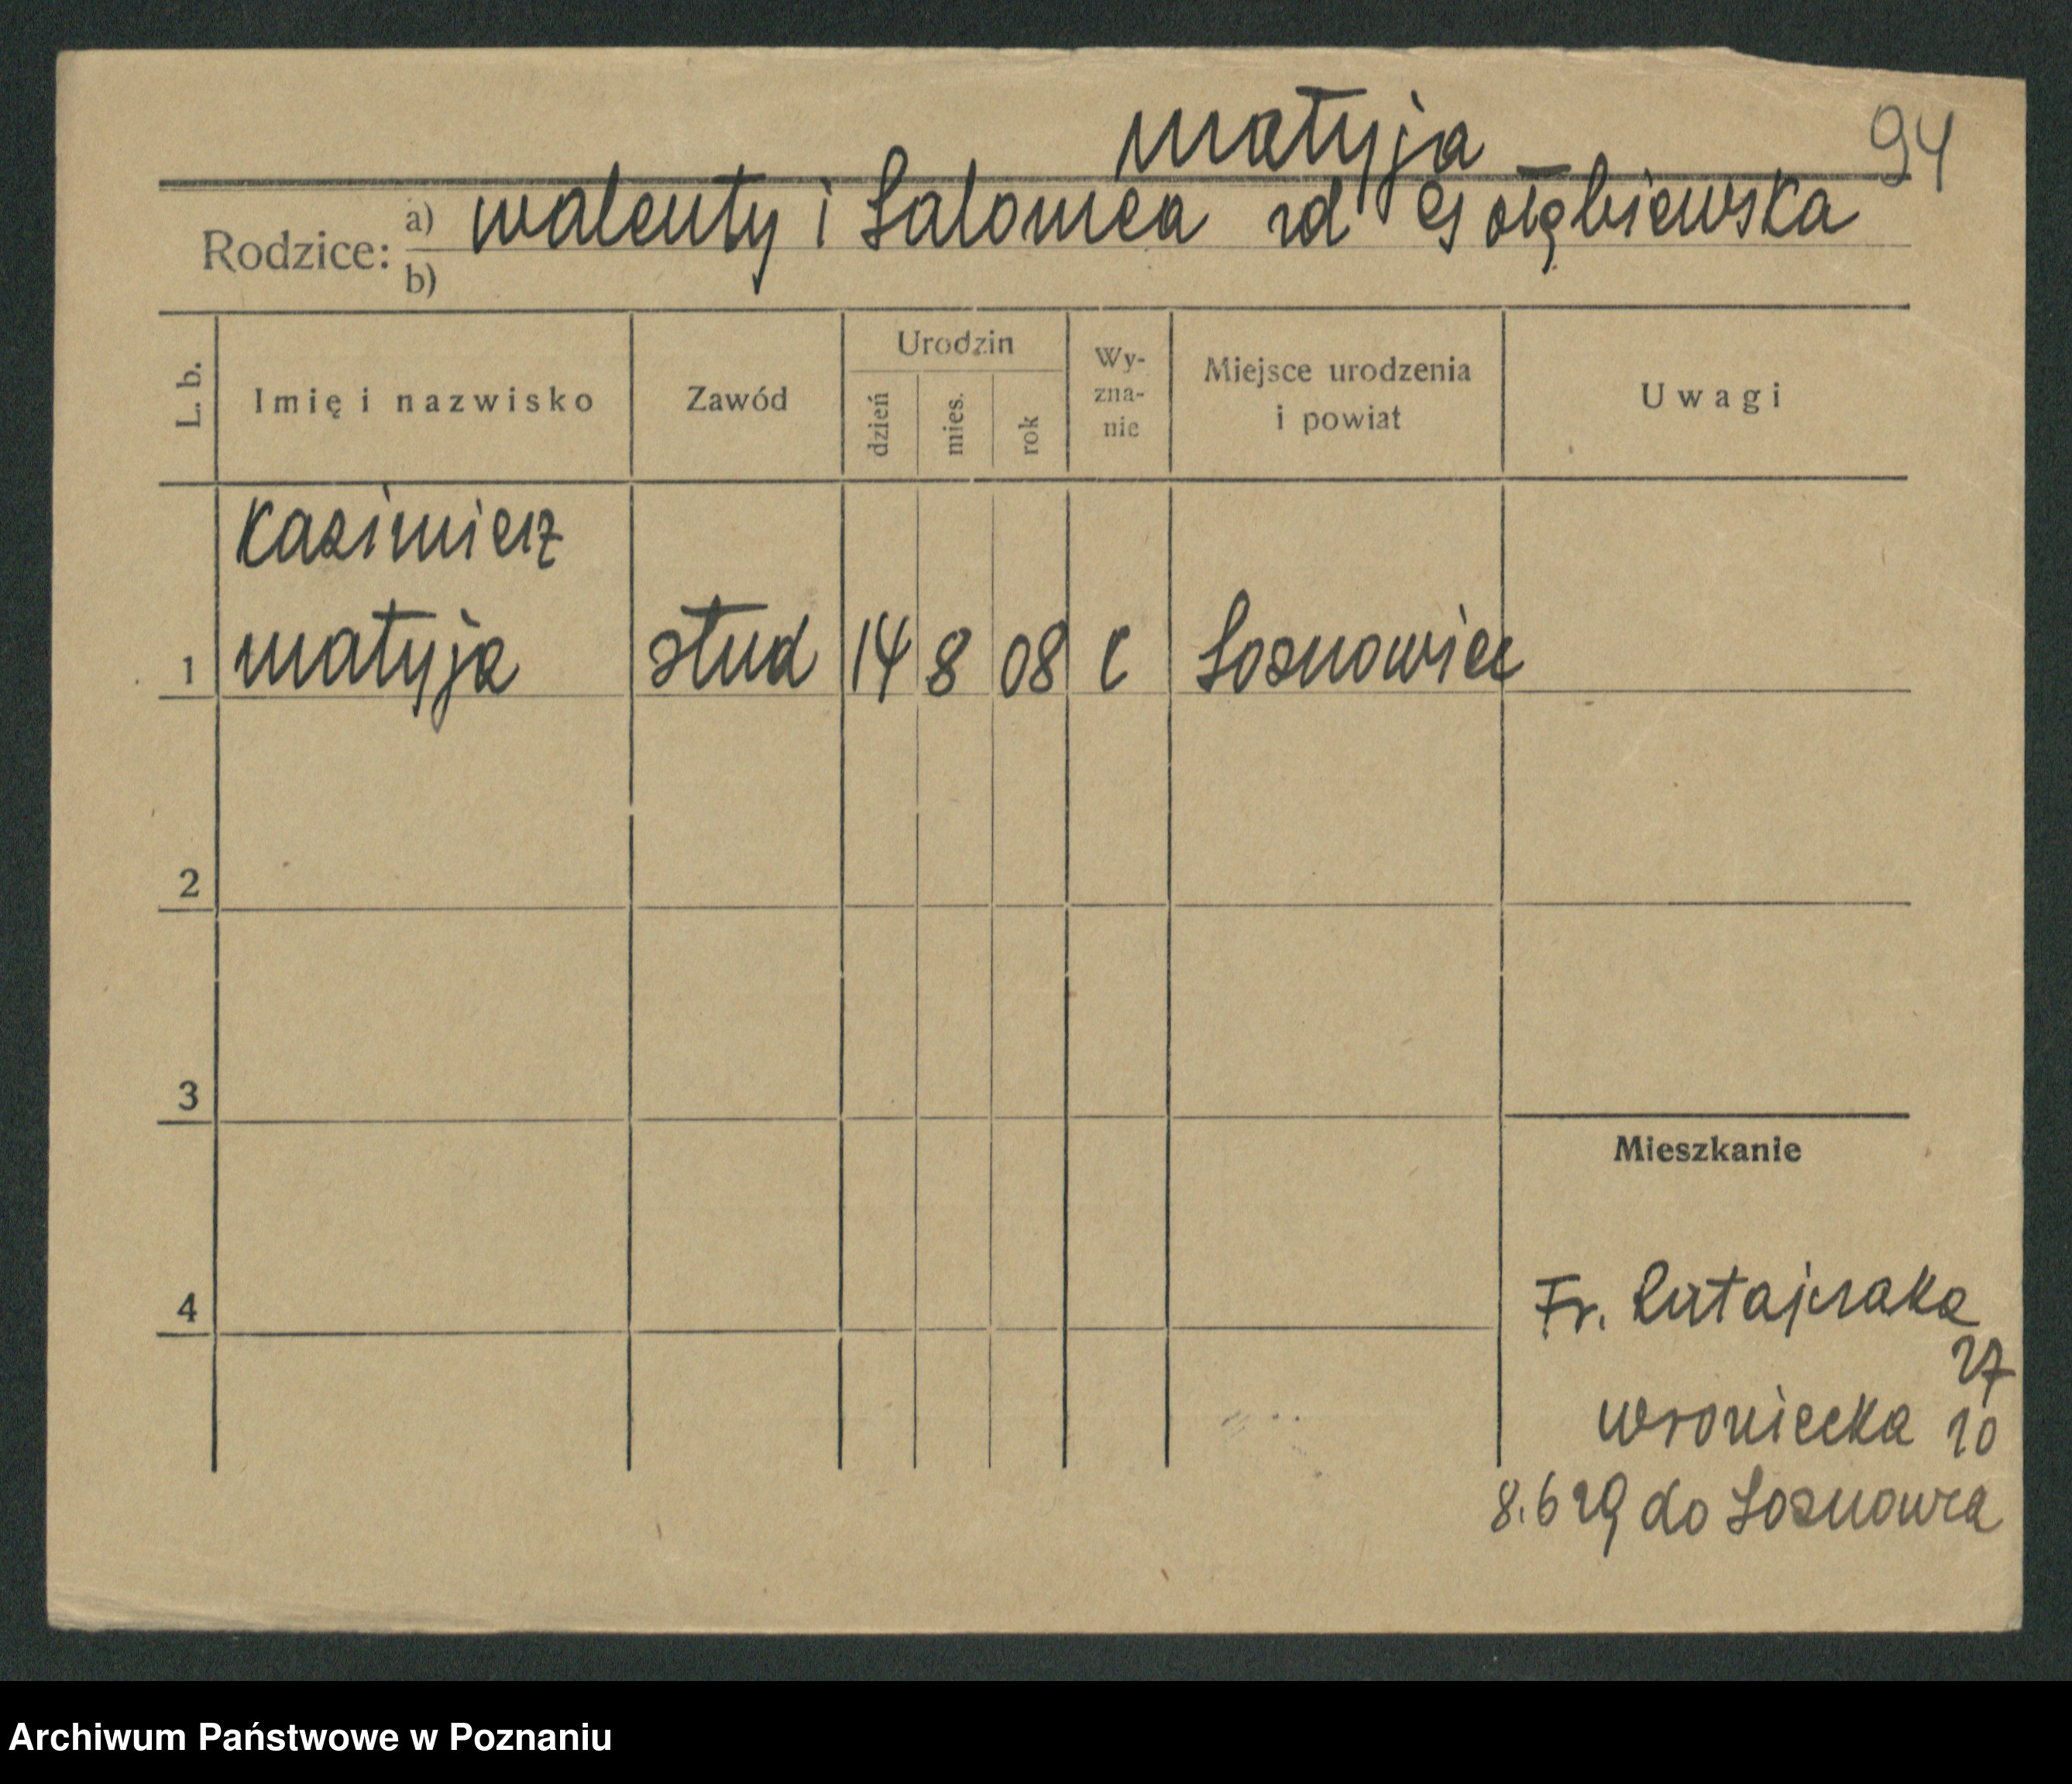 matyja 94
Rodzice: a) walenty i Salomea rd Gołębiewska
b)
L. b. Imię i nazwisko Zawód Urodzin dzień mies. rok Wy-zna-nie Miejsce urodzenia i powiat Uwagi
Kazimierz
1 matyja stud 14 8 08 c Sosnowiec
2
3
Mieszkanie
4 Fr. Ratajczaka
27
wroniecka 10
8.6 29 do Sosnowca
Archiwum Państwowe w Poznaniu